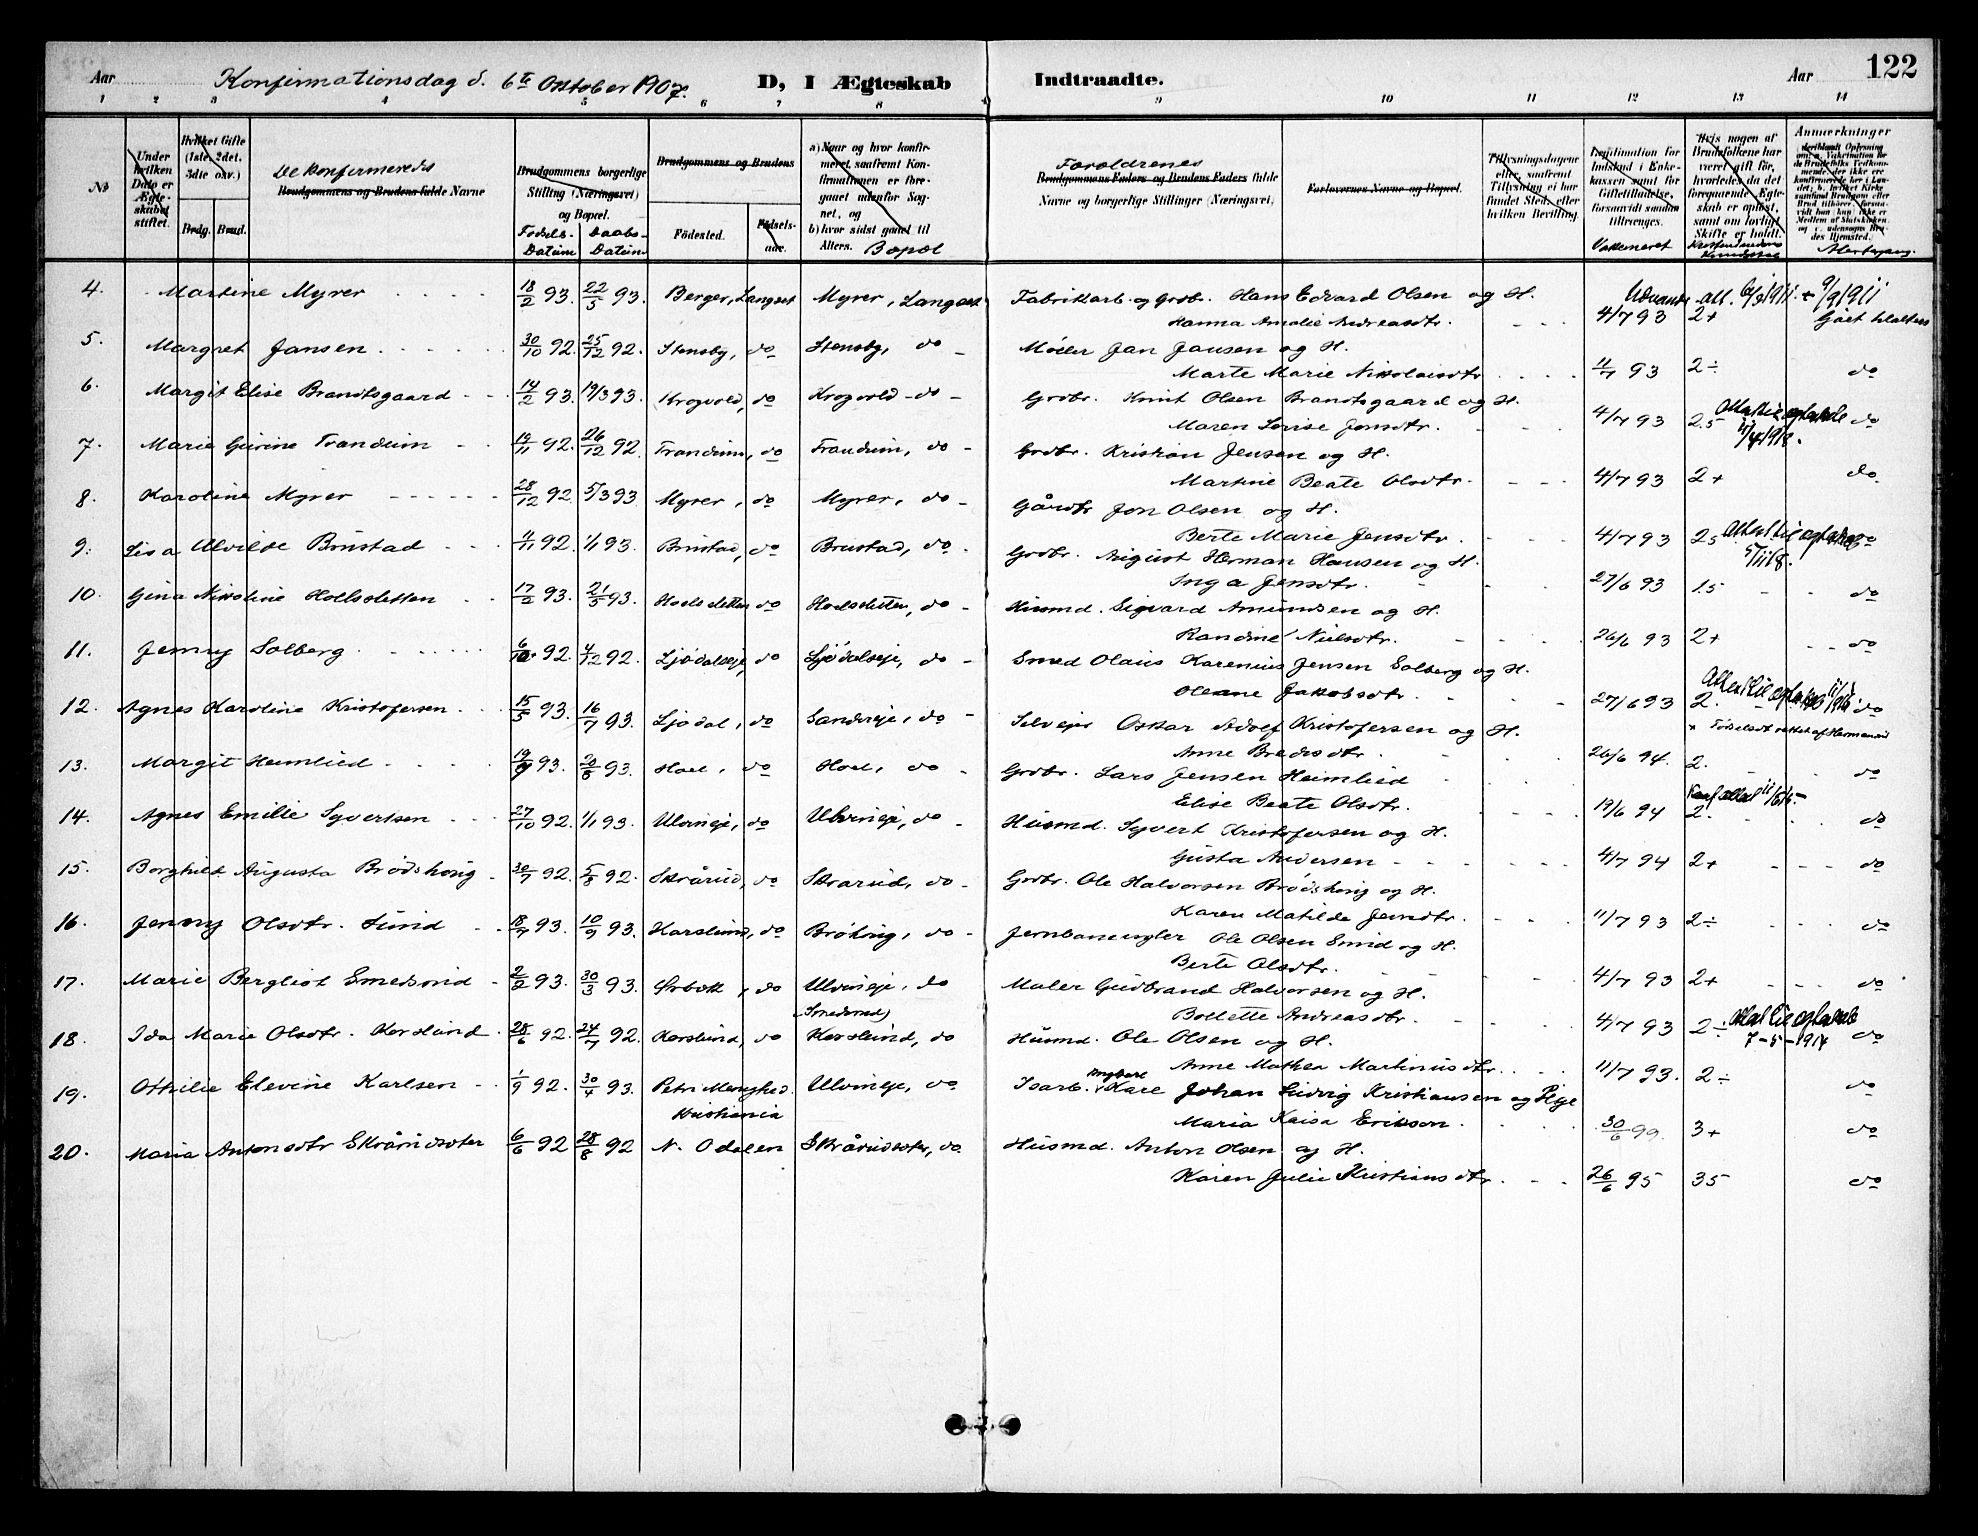 Aar Konfirmationsdag d. 6te Oktober 1907. D, I Ægteskab Indtraadte. Aar 122
1 2 3 4 5 6 7 8 9 10 11 12 13 14
No
Under hvilken Dato er Ægteskabet stiftet.
Hvilket Gifte (1ste, 2det, 3die osv.)
Brdg. Brud.
De konfirmeredes
Brudgommens og Brudens fulde Navne
Brudgommens borgerlige Stilling (Næringsvei) og Bopæl.
Fødsels-Datum Daabs-Datum
Brudgommens og Brudens
Fødested. Fødsels-aar.
a) Naar og hvor konfirmeret, saafremt Konfirmationen er foregaaet udenfor Sognet, og
b) hvor sidst gaaet til Alters. Bopæl
Forældrenes
Brudgommens Faders og Brudens Faders fulde Navne og borgerlige Stillinger (Næringsvei).
Forlovernes Navne og Bopæl.
Tillysningsdagene eller, saafremt Tillysning ei har fundet Sted, eller hvilken Bevilling.
Legitimation for Indskud i Enkekassen samt for Giftetilladelse, forsaavidt saadan tiltrænges.
Vakcineret
Hvis nogen af Brudefolkene har været gift før, hvorledes da det foregaaende Ægteskab er opløst, samt om lovligt Skifte er holdt.
Kristendoms Kundskab
Anmerkninger
Altergang.
4. Martine Myrer 18/2 93. 22/5 93. Berger, Langset Myrer, Langset Fabrikarb. og Grdbr. Hans Edvard Olsen og H.
Hanna Amalie Andreasdtr. 4/7 93 2+ Gået til alters
5. Margret Jansen 30/10 92. 25/12 92. Stensby, do Stensby, do Møller Jan Jansen og H.
Marte Marie Nikolaisdtr 4/7 93 2÷ do
6. Margit Elise Brandtsgaard 14/2 93. 19/3 93. Krogvold, do Krogvold do Grdbr. Knut Olsen Brandtsgaard og H.
Maren Lovise Jensdtr. 4/7 93 2.5 do
7. Marie Gurine Trandum 14/11 92. 26/12 92. Trandum, do Trandum, do Grdbr. Kristian Jensen og H.
Martine Beate Olsdtr. 4/7 93 2+ do
8. Karoline Myrer 28/12 92 5/3 93 Myrer, do Myrer, do Gårdbr Jon Olsen og H.
Berte Marie Jensdtr. 4/7 93 2.5 do
9. Lisa Ulvilde Brustad 4/11 92. 1/1 93. Brustad, do Brustad, do Grdbr. August Herman Hansen og H.
Inga Jensdtr. 27/6 93 1.5 do
10. Gina Nikoline Holsletten 17/2 93. 21/5 93. Hoelsletten do Hoelsletten, do Husmd. Sigvard Amundsen og H.
Randine Nielsdtr. 26/6 93 2+ do
11. Jenny Solberg 6/10 92. 4/12 92. Ljødalseje, do Ljødalseje, do Smed Olaus Karenius Jensen Solberg og H.
Oleane Jakobsdtr. 27/6 93 2. do
12. Agnes Karoline Kristofersen 15/5 93. 16/7 93. Ljødal, do Sandseje, do Selvejer Oskar Adolf Kristofersen og H.
Anne Bredesdtr. 26/6 94. 2. do
13. Margit Heimlied 19/9 93. 20/8 93. Hoel, do Hoel, do Grdbr. Lars Jensen Heimlied
Elise Beate Olsdtr. 19/6 94 2. do
14. Agnes Emilie Syvertsen 27/10 92. 1/1 93. Ulvineje, do Ulvineje, do Husmd. Syvert Kristofersen og H.
Gusta Andersen 4/7 94 2+ do
15. Borghild Augusta Brødshoug 30/7 92. 5/8 92. Skårud, do Skarud, do Grdbr. Ole Halvorsen Brødshoug og H.
Karen Matilde Jensdtr. 11/7 93 2÷ do
16. Jenny Olsdtr. Lund 18/7 93. 10/9 93. Karslund, do do Jernbanengler Ole Olsen Lund og H.
Berte Olsdtr. 4/7 93 2+ do
17. Marie Bergliot Smedsrud 2/2 93. 30/3 93. do Ulvineje, do Maler Gudbrand Halvorsen og H.
(Smedsrud) Bollette Andreasdtr. 4/7 93 2÷ do
7-5-1914
18. Ida Marie Olsdtr. Korslund 28/6 92. 24/7 92. Korslund, do Korslund, do Husmd. Ole Olsen og H.
Anne Mathea Martinusdtr. 11/7 93. 2÷ do
19. Othilie Elevine Karlsen 1/9 92. 30/4 93. Petri Menighed. Kristiania Ulvineje, do Isarb. Ungkarl Karl Johan Ludvig Kristiansen og Pige
Maria Kaisa Erikson. 30/6 99. 3+ do
20. Maria Antonsdtr Skårudsæter 6/6 92 28/8 92 N. Odalen Skårudsæter, do Husmd. Anton Olsen og H.
Karen Julie Kristiansdtr. 26/6 95 35 do